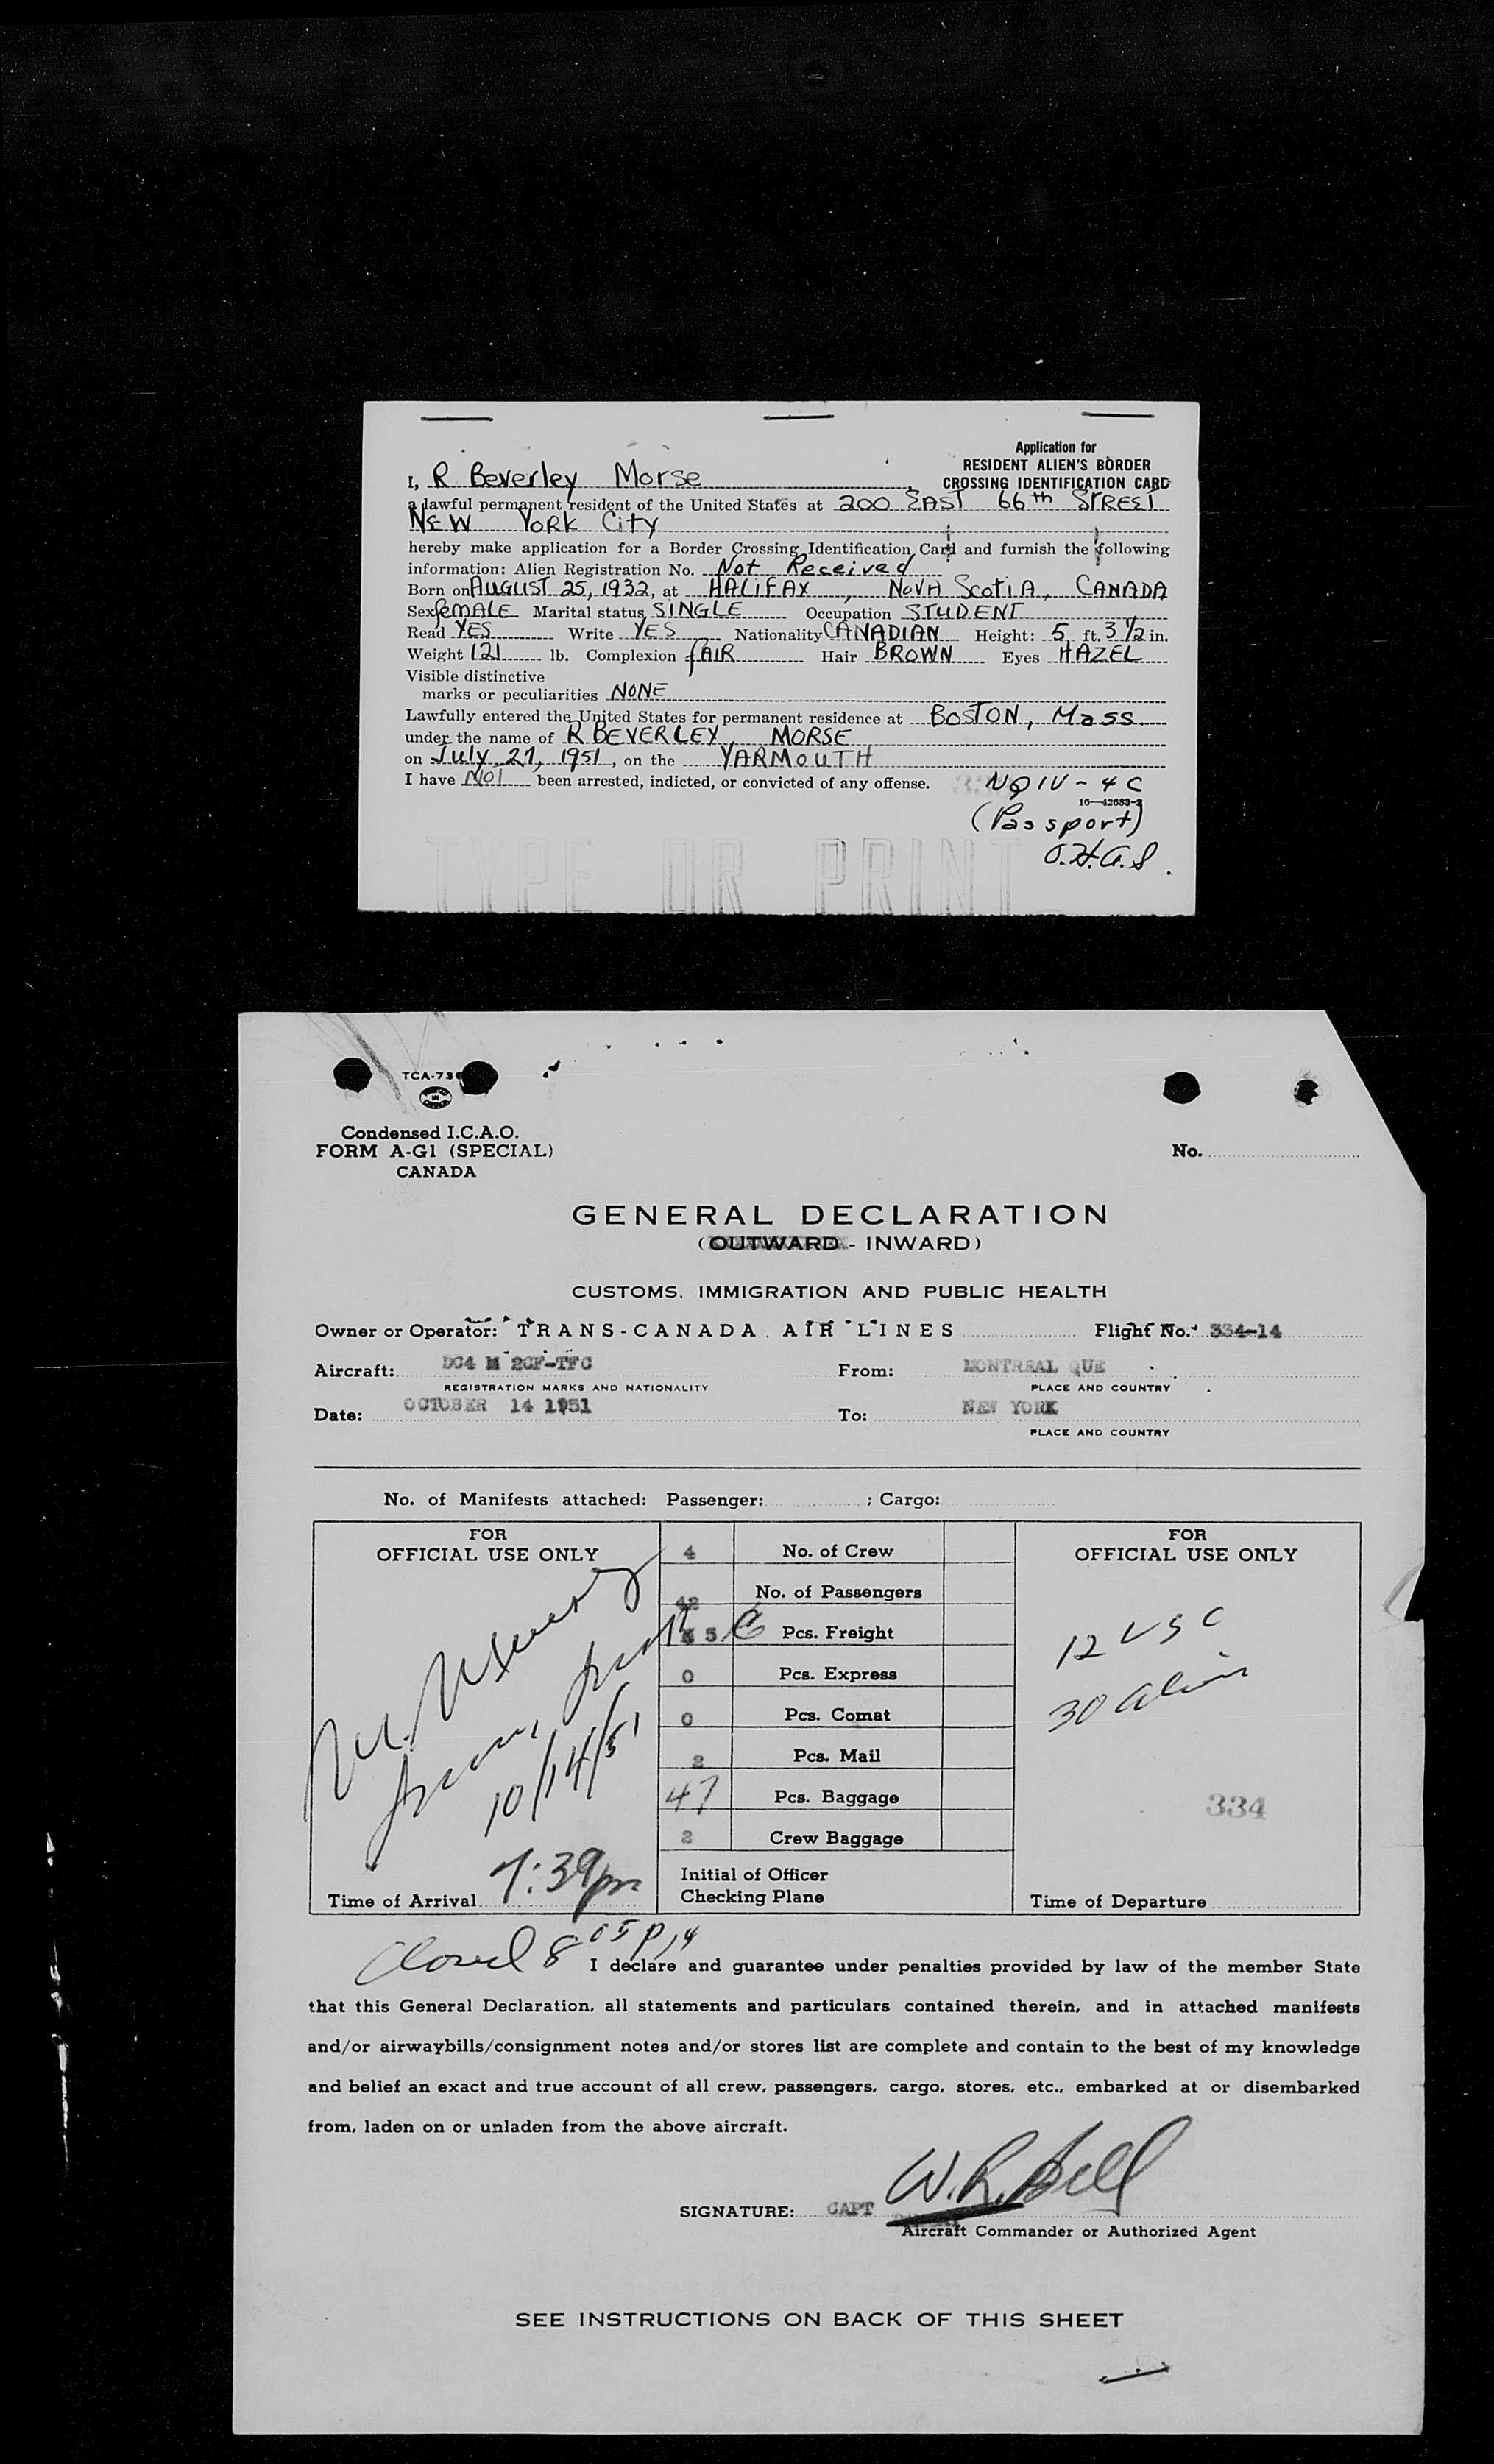 Application for
RESIDENT ALIEN'S BORDER
CROSSING IDENTIFICATION CARD
I, R Beverley Morse
a lawful permanent resident of the United States at 200 EAST 66th STREET
NEW YORK City
hereby make application for a Border Crossing Identification Card and furnish the following
information: Alien Registration No. Not Received
Born on AUGUST 25, 1932, at HALIFAX, NOVA SCOTIA, CANADA
Sex FEMALE Marital status SINGLE Occupation STUDENT
Read YES Write YES Nationality CANADIAN Height: 5 ft. 3 1/2 in.
Weight 121 lb. Complexion fAIR Hair BROWN Eyes HAZEL
Visible distinctive
marks or peculiarities NONE
Lawfully entered the United States for permanent residence at BOSTON, Mass
under the name of R BEVERLEY MORSE
on July 27, 1951, on the YARMOUTH
I have NOT been arrested, indicted, or convicted of any offense.
NQIV-4C
16-42683-2
(Passport)
TYPE OR PRINT
TCA-73
Condensed I.C.A.O.
FORM A-G1 (SPECIAL)
CANADA
No.
GENERAL DECLARATION
(OUTWARD - INWARD)
CUSTOMS, IMMIGRATION AND PUBLIC HEALTH
Owner or Operator: TRANS-CANADA AIR LINES Flight No. 334-14
Aircraft: DC4 M 2CF-TFC From: MONTREAL QUE
REGISTRATION MARKS AND NATIONALITY PLACE AND COUNTRY
Date: OCTOBER 14 1951 To: NEW YORK
PLACE AND COUNTRY
No. of Manifests attached: Passenger: ; Cargo:
FOR
OFFICIAL USE ONLY
10/14/51
Time of Arrival 7:39pm
4 No. of Crew
42 No. of Passengers
Pcs. Freight
0 Pcs. Express
0 Pcs. Comat
2 Pcs. Mail
47 Pcs. Baggage
2 Crew Baggage
Initial of Officer
Checking Plane
FOR
OFFICIAL USE ONLY
12 USC
30 alien
334
Time of Departure
Closed 8 05 P
I declare and guarantee under penalties provided by law of the member State
that this General Declaration, all statements and particulars contained therein, and in attached manifests
and/or airwaybills/consignment notes and/or stores list are complete and contain to the best of my knowledge
and belief an exact and true account of all crew, passengers, cargo, stores, etc., embarked at or disembarked
from, laden on or unladen from the above aircraft.
SIGNATURE: CAPT W.R. Bell
Aircraft Commander or Authorized Agent
SEE INSTRUCTIONS ON BACK OF THIS SHEET